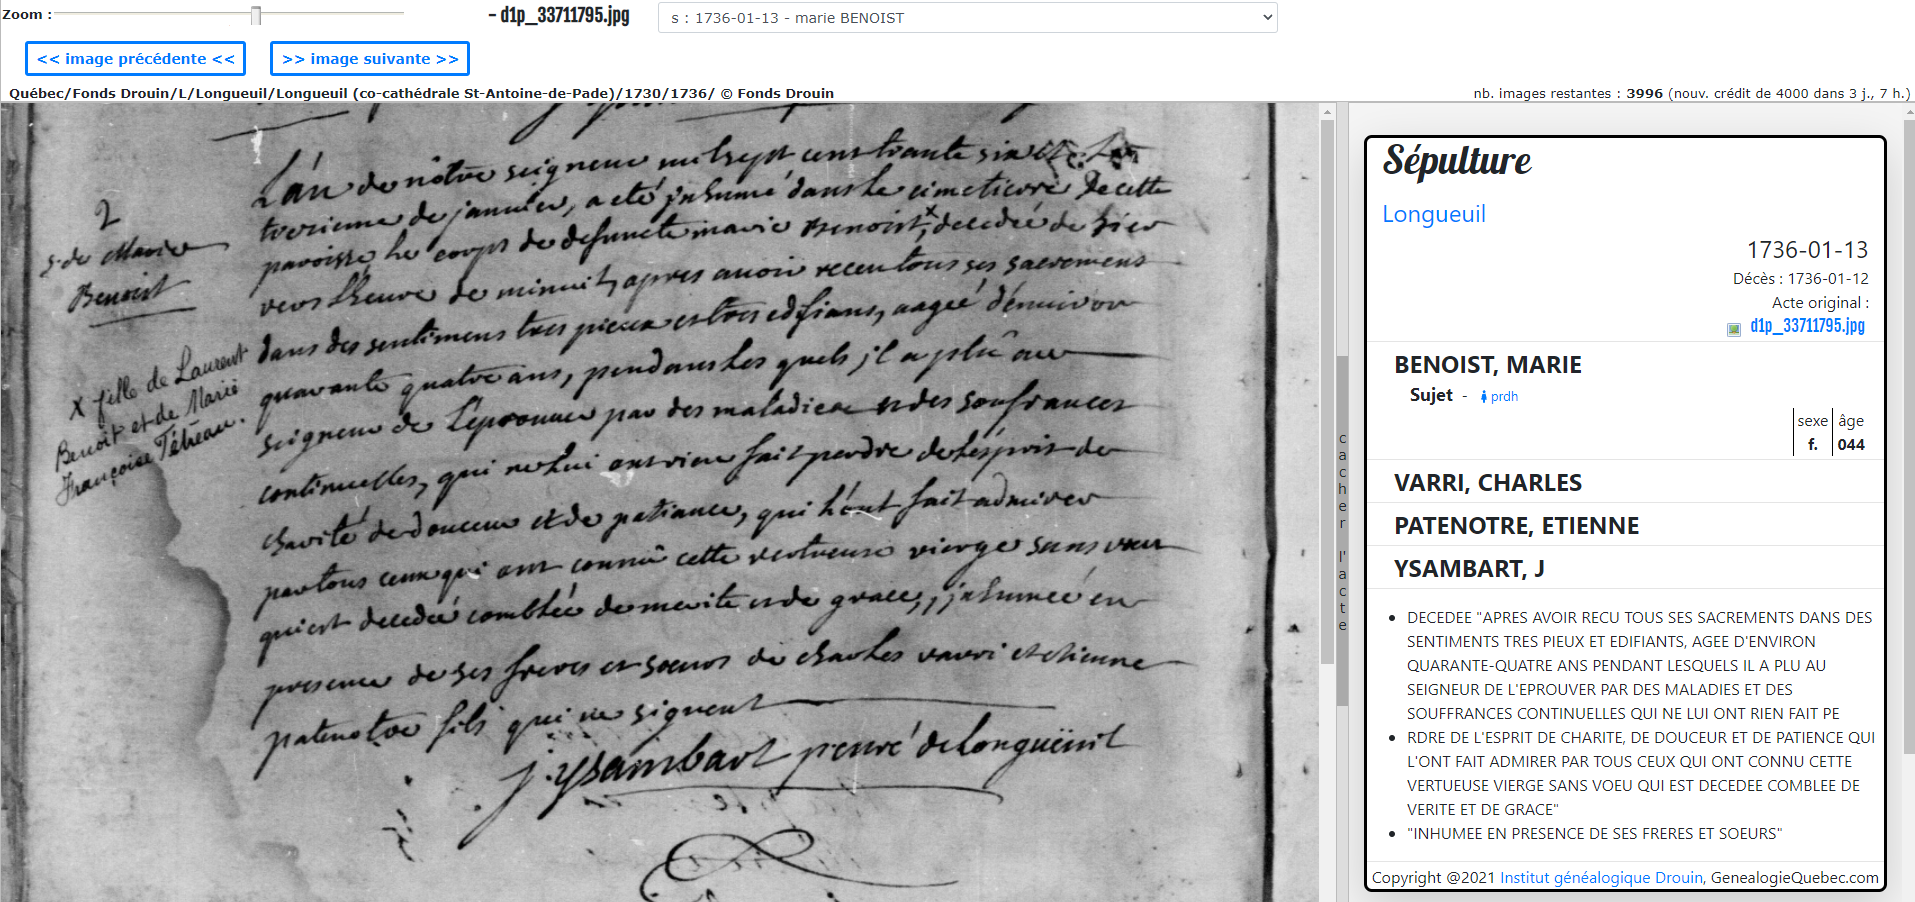 Zoom :
- d1p_33711795.jpg
s : 1736-01-13 - marie BENOIST
<< image précédente <<
>> image suivante >>
Québec/Fonds Drouin/L/Longueuil/Longueuil (co-cathédrale St-Antoine-de-Pade)/1730/1736/ © Fonds Drouin
nb. images restantes : 3996 (nouv. crédit de 4000 dans 3 j., 7 h.)
2
s. de Marie
Benoist
x fille de Laurent
Benoit et de Marie
Françoise Tétreau.
L'an de nôtre seigneur mil sept cens trante six et le
treizieme de janvier, a eté jnhumé dans le cimetiere de cette
paroisse le corps de defuncte marie Benoist,x decedée de hier
vers l'heure de minuit, apres avoir receu tous ses sacremens
dans des sentimens tres pieux et tres edifians, aageé d'environ
quarante quatre ans, pendans les quels jl a plû au
seigneur de l'éprouver par des maladies et des soufrances
continuelles, qui ne lui ont rien fait perdre de l'esprit de
charité de douceur et de patiance, qui l'ont fait admirer
par tous ceux qui ont connu cette vertueuse vierge sans vœu
qui est decedeé combleé de merite et de grace, jnhumeé en
presence de ses freres et sœurs de charles varri et etienne
patenotre fils qui ne signent
j. ysambart p curé de Longueüil
cacher l'acte
Sépulture
Longueuil
1736-01-13
Décès : 1736-01-12
Acte original :
d1p_33711795.jpg
BENOIST, MARIE
Sujet - prdh
sexe âge
f. 044
VARRI, CHARLES
PATENOTRE, ETIENNE
YSAMBART, J
• DECEDEE "APRES AVOIR RECU TOUS SES SACREMENTS DANS DES
SENTIMENTS TRES PIEUX ET EDIFIANTS, AGEE D'ENVIRON
QUARANTE-QUATRE ANS PENDANT LESQUELS IL A PLU AU
SEIGNEUR DE L'EPROUVER PAR DES MALADIES ET DES
SOUFFRANCES CONTINUELLES QUI NE LUI ONT RIEN FAIT PE
• RDRE DE L'ESPRIT DE CHARITE, DE DOUCEUR ET DE PATIENCE QUI
L'ONT FAIT ADMIRER PAR TOUS CEUX QUI ONT CONNU CETTE
VERTUEUSE VIERGE SANS VOEU QUI EST DECEDEE COMBLEE DE
VERITE ET DE GRACE"
• "INHUMEE EN PRESENCE DE SES FRERES ET SOEURS"
Copyright @2021 Institut généalogique Drouin, GenealogieQuebec.com